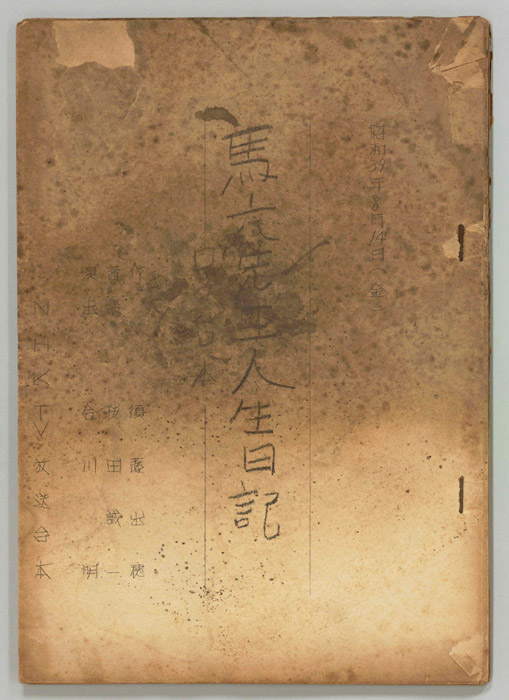 昭和39年8月14日（金）
馬六先生人生日記
作 須藤出穂
音楽 我田誠一
演出 合川明
NHKTV放送台本